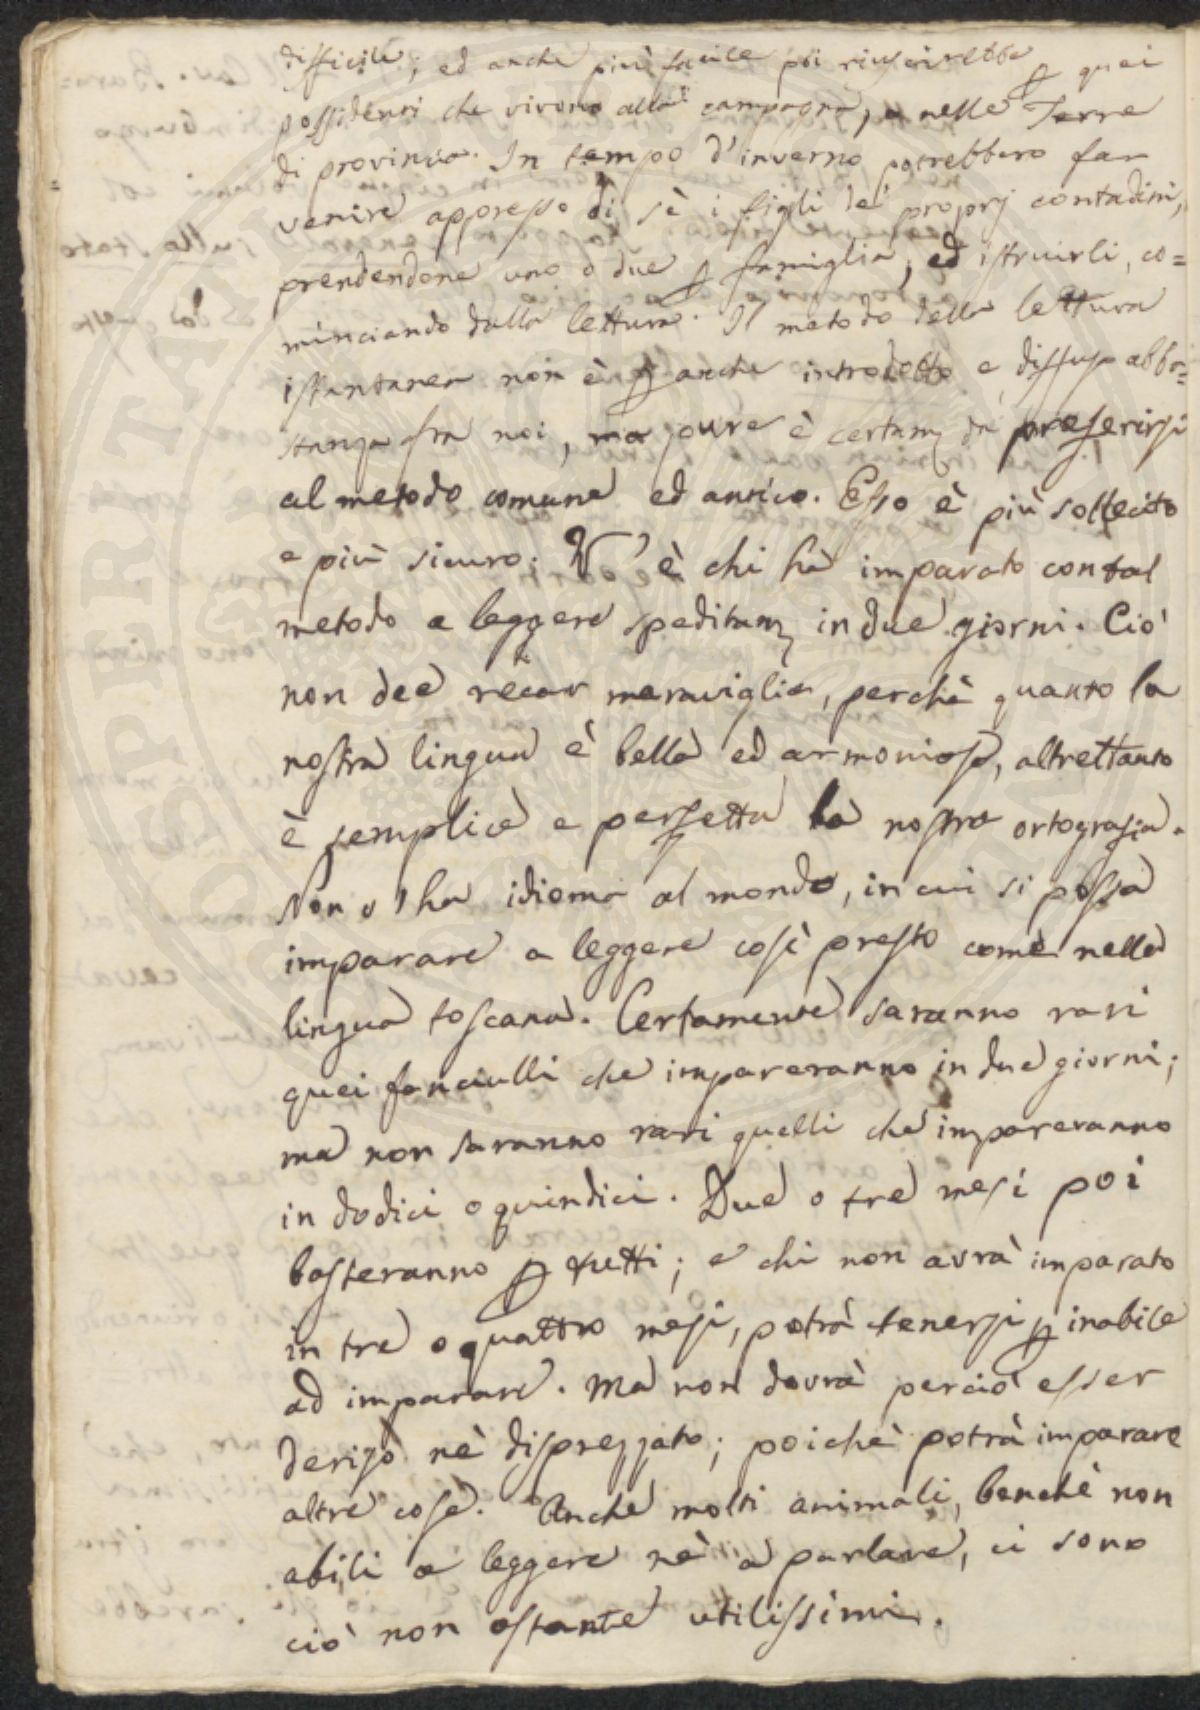 difficile; ed anche più facile poi riuscirebbe p quei
possidenti che vivono alla campagna, o nelle Terre
di provincia. In tempo d'inverno potrebbero far
venire appresso di sè i figli de' proprj contadini,
prendendone uno o due p famiglia, ed istruirli, co=
minciando dalla lettura. Il metodo della lettura
istantanea non è p anche introdotto e diffuso abba=
stanza fra noi, ma pure è certam da preferirsi
al metodo comune ed antico. Esso è più sollecito
e più sicuro. V'è chi hà imparato con tal
metodo a leggere speditam in due giorni. Ciò
non dee recar meraviglia, perchè quanto la
nostra lingua è bella ed armoniosa, altrettanto
è semplice e perfetta la nostra ortografia.
Non v'ha idioma al mondo, in cui si possa
imparare a leggere così presto come nella
lingua toscana. Certamente saranno rari
quei fanciulli che impareranno in due giorni;
ma non saranno rari quelli che impareranno
in dodici o quindici. Due o tre mesi poi
basteranno p tutti; e chi non avrà imparato
in tre o quattro mesi, potrà tenersi p inabile
ad imparare. Ma non dovrà perciò esser
deriso nè disprezzato; poichè potrà imparare
altre cose. Anche molti animali, benchè non
abili a leggere nè a parlare, ci sono
ciò non ostante utilissimi.